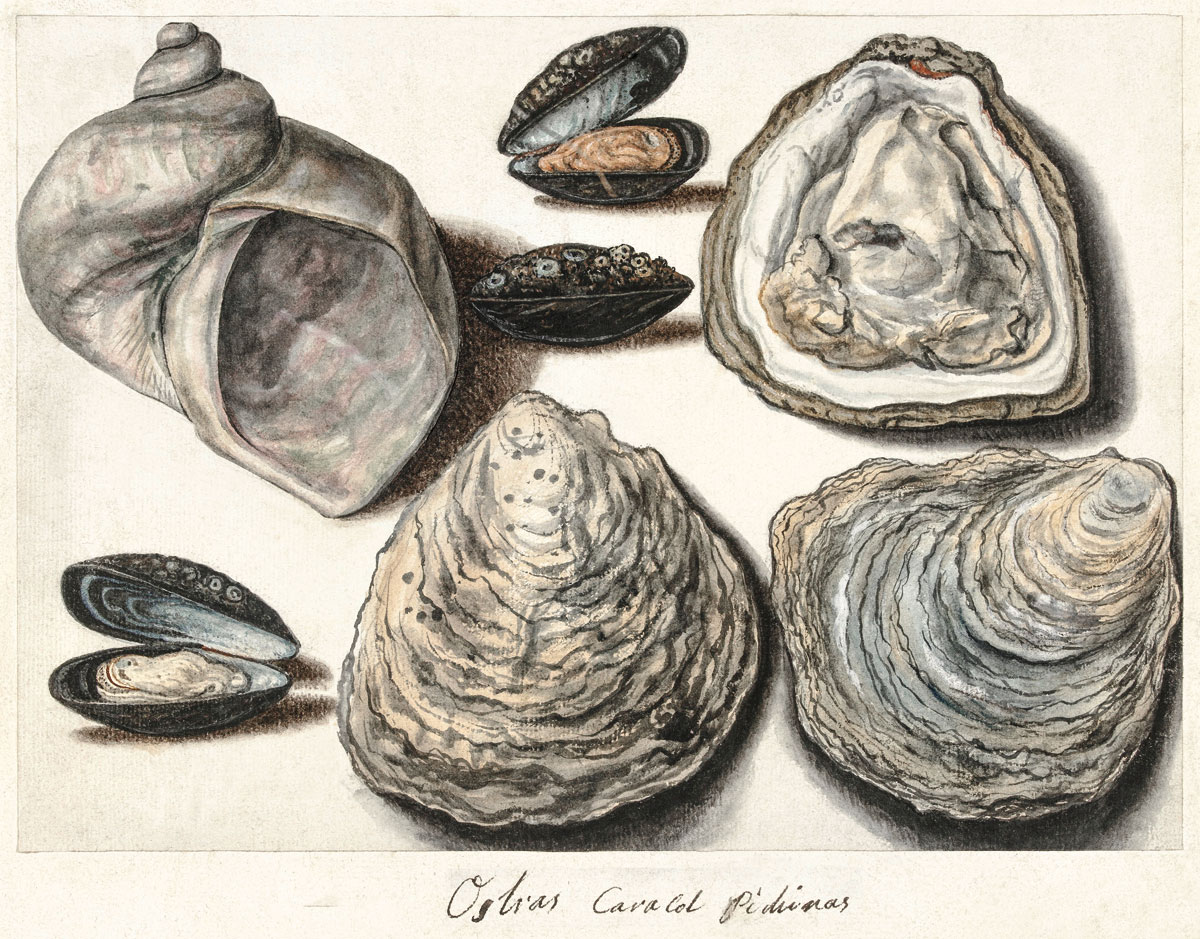 Ostras Caracol Pidiinas